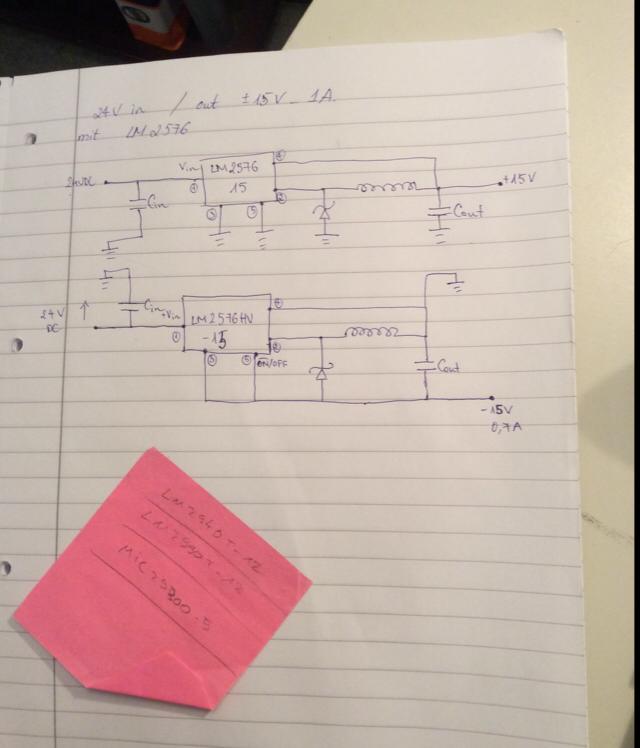 24V in / out ±15V - 1A.
mit LM2576
24VDC
Vin
LM2576
15
④
①
②
③
⑤
Cin
+15V
Cout
24V
DC
Cin
+Vin
LM2576HV
-15
④
①
②
③
⑤
ON/OFF
Cout
-15V
0,7A
LM2940T-12
LM2990T-12